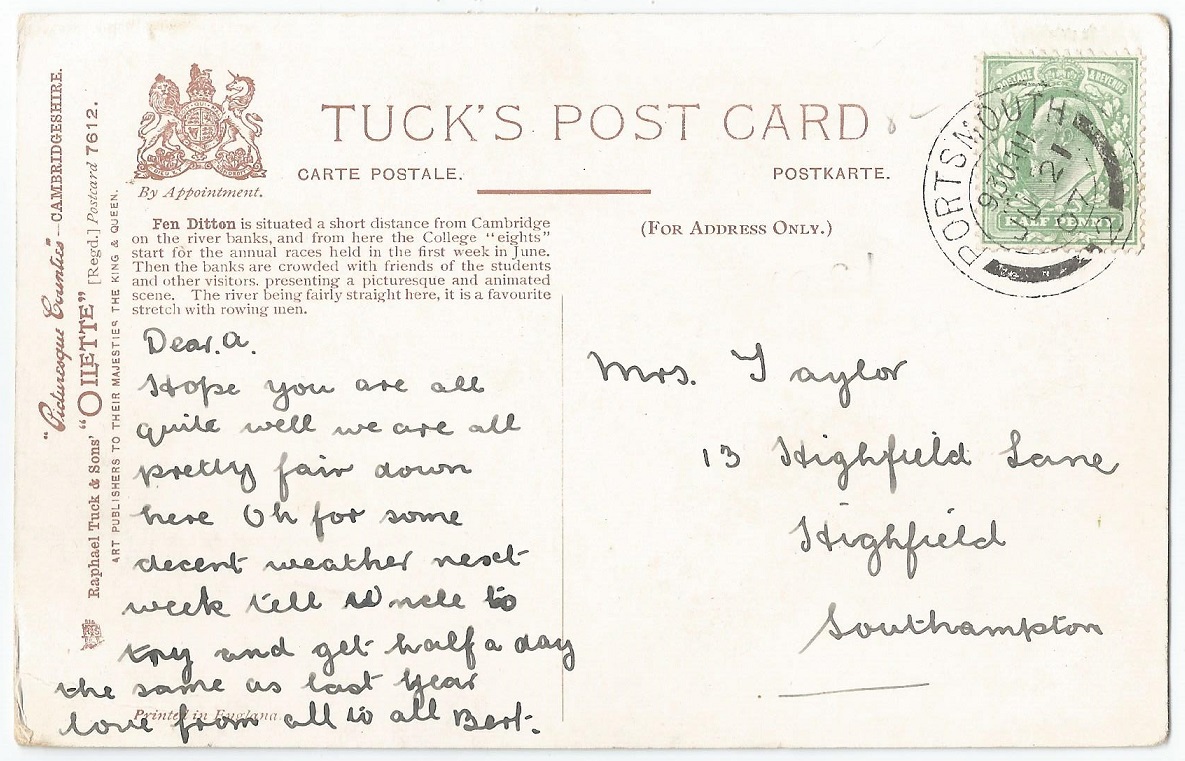 "Picturesque Counties"—CAMBRIDGESHIRE.
Raphael Tuck & Sons' "OILETTE" [Regd.] Postcard 7612.
ART PUBLISHERS TO THEIR MAJESTIES THE KING & QUEEN.
By Appointment.
TUCK'S POST CARD
CARTE POSTALE.
POSTKARTE.
(FOR ADDRESS ONLY.)
Fen Ditton is situated a short distance from Cambridge
on the river banks, and from here the College "eights"
start for the annual races held in the first week in June.
Then the banks are crowded with friends of the students
and other visitors. presenting a picturesque and animated
scene. The river being fairly straight here, it is a favourite
stretch with rowing men.
Dear. A.
Hope you are all
quite well we are all
pretty fair down
here Oh for some
decent weather next
week tell Uncle to
try and get half a day
the same as last year
love from all to all Bert.
Printed in England.
Mrs. Taylor
13 Highfield Lane
Highfield
Southampton
PORTSMOUTH
JY 21
07
POSTAGE & REVENUE
HALF PENNY